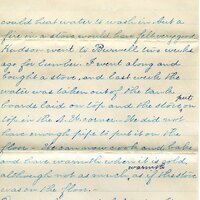 could heat water to wash in. But a
fire in a stove would feel very good.
Hudson went to Burwell two weeks
ago for lumber. I went along and
bought a stove, and last week the
water was taken out of the tank
boards laid on top and the stove put
on top in the N.W. corner. We did not
have enough pipe to put it on the
floor. We can now cook and bake
and have warmth when it is cold,
although not as much warmth as if the stove
was on the floor.